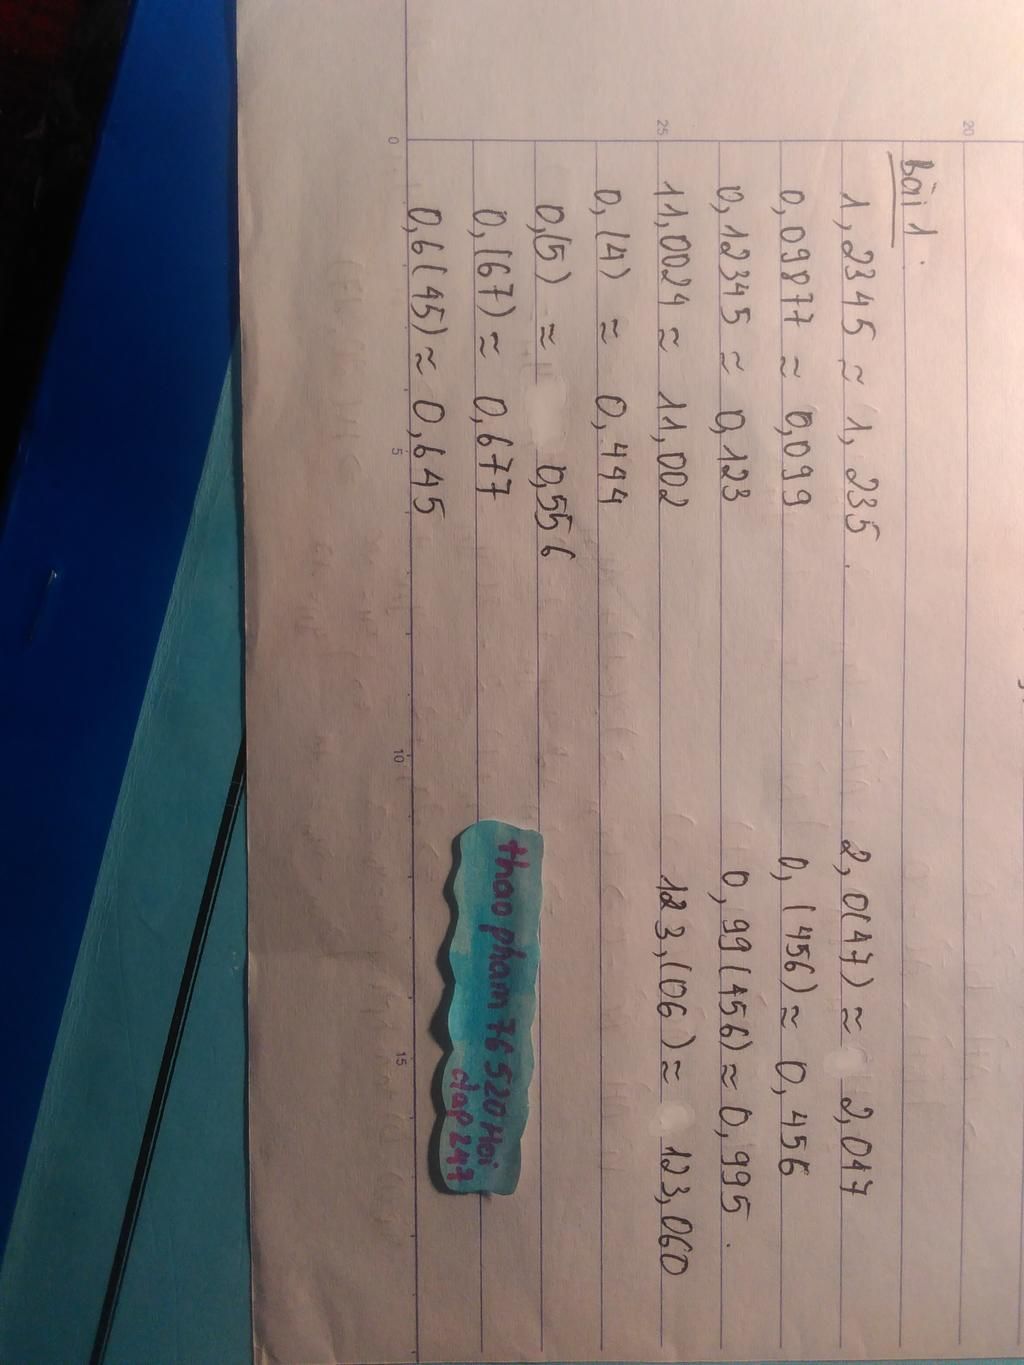 bài 1:
1,2345 ≈ 1,235
0,09877 ≈ 0,099
0,12345 ≈ 0,123
11,0024 ≈ 11,002
0,(4) ≈ 0,444
0,(5) ≈ 0,556
0,(67) ≈ 0,677
0,6(45) ≈ 0,645
2,0(47) ≈ 2,047
0,(456) ≈ 0,456
0,99(456) ≈ 0,995.
123,(06) ≈ 123,060
thao pham 76520 Hoi
dap 247
20
25
0
5
10
15